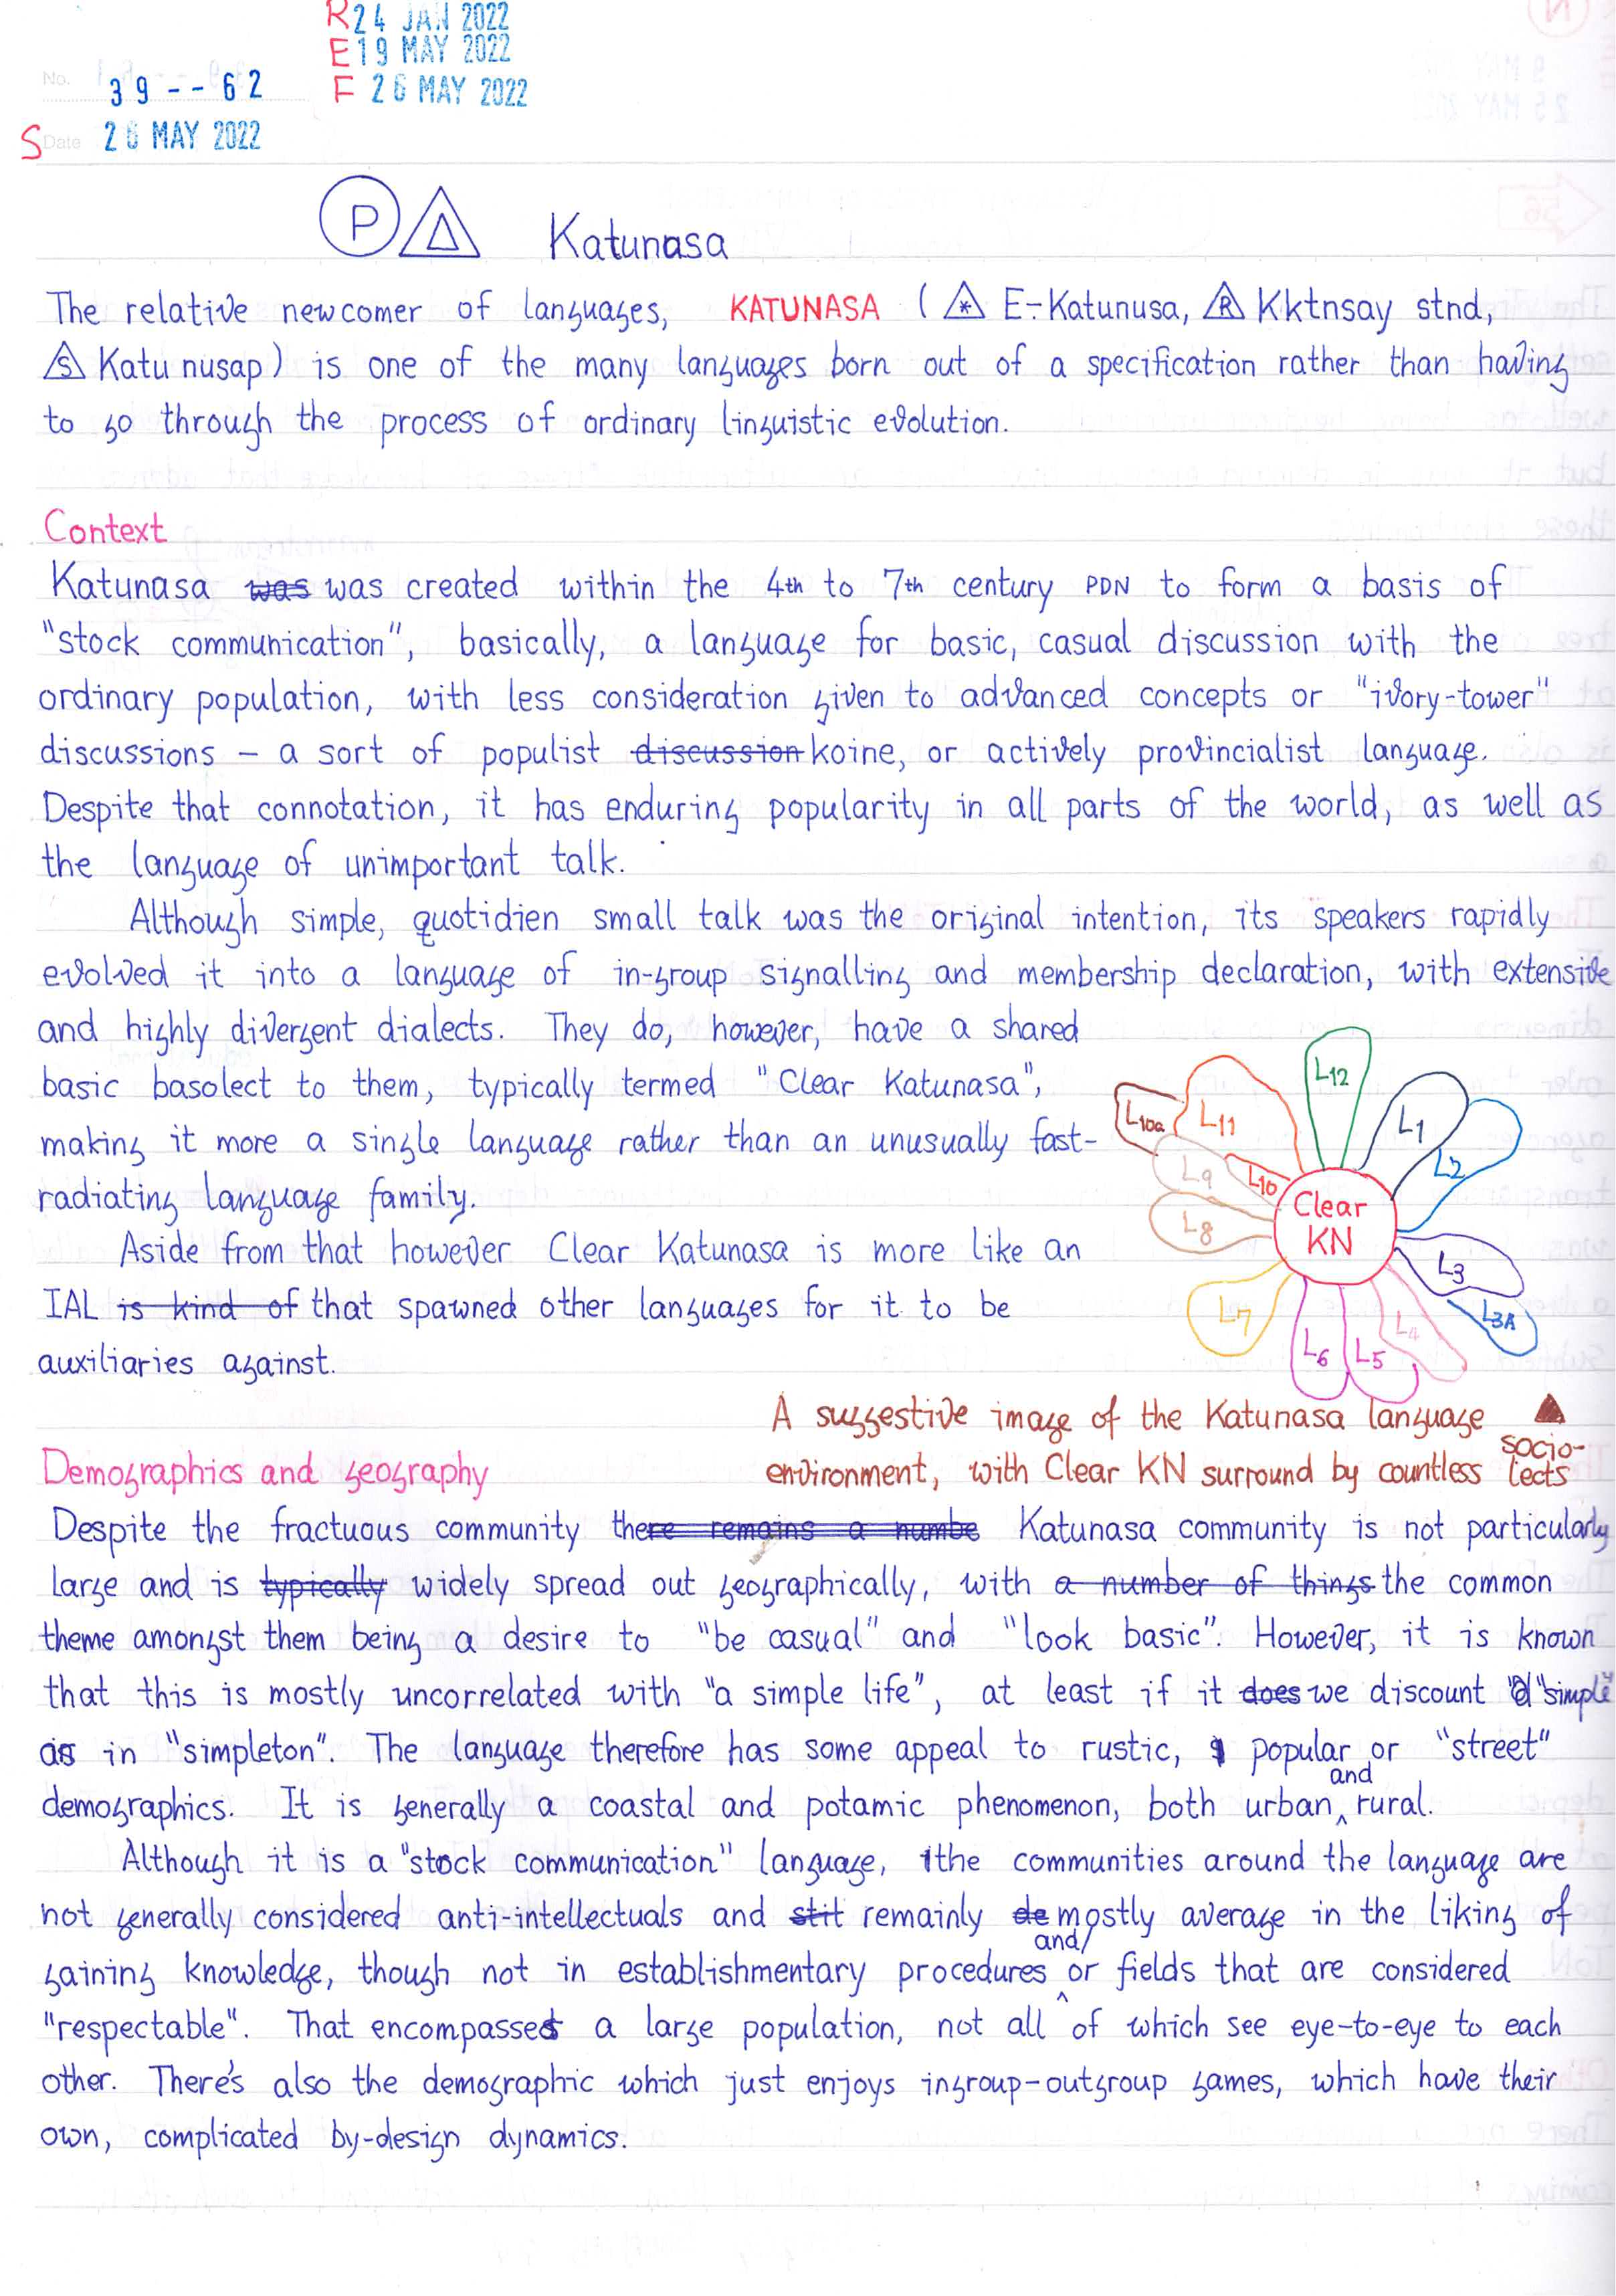 R 24 JAN 2022
E 19 MAY 2022
No. 39--62 F 26 MAY 2022
S Date 26 MAY 2022
P Δ Katunasa
The relative newcomer of languages, KATUNASA ( * E-Katunusa, R Kktnsay stnd,
S Katunusap) is one of the many languages born out of a specification rather than having
to go through the process of ordinary linguistic evolution.
Context
Katunasa was was created within the 4th to 7th century PDN to form a basis of
"stock communication", basically, a language for basic, casual discussion with the
ordinary population, with less consideration given to advanced concepts or "ivory-tower"
discussions – a sort of populist discussion koine, or actively provincialist language.
Despite that connotation, it has enduring popularity in all parts of the world, as well as
the language of unimportant talk.
Although simple, quotidien small talk was the original intention, its speakers rapidly
evolved it into a language of in-group signalling and membership declaration, with extensive
and highly divergent dialects. They do, however, have a shared
basic basolect to them, typically termed "Clear Katunasa",
making it more a single language rather than an unusually fast-
radiating language family.
Aside from that however Clear Katunasa is more like an
IAL is kind of that spawned other languages for it to be
auxiliaries against.
L12
L1
L2
L3
L3A
L4
L5
L6
L7
L8
L9
L10
L10a
L11
Clear
KN
A suggestive image of the Katunasa language
environment, with Clear KN surround by countless socio-
lects
Demographics and geography
Despite the fractuous community there remains a numbe Katunasa community is not particularly
large and is typically widely spread out geographically, with a number of things the common
theme amongst them being a desire to "be casual" and "look basic". However, it is known
that this is mostly uncorrelated with "a simple life", at least if it does we discount "simple"
as in "simpleton". The language therefore has some appeal to rustic, popular or "street"
demographics. It is generally a coastal and potamic phenomenon, both urban and rural.
Although it is a "stock communication" language, the communities around the language are
not generally considered anti-intellectuals and stit remainly de mostly average in the liking of
gaining knowledge, though not in establishmentary procedures and/ or fields that are considered
"respectable". That encompasses a large population, not all of which see eye-to-eye to each
other. There's also the demographic which just enjoys ingroup-outgroup games, which have their
own, complicated by-design dynamics.